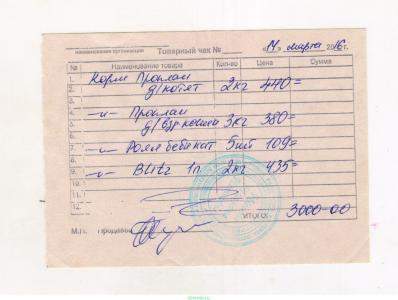 наименование организации Товарный чек № «14» марта 2016г.
№ Наименование товара Кол-во Цена Сумма
1. Корм Проплан
2. д/котят 2кг 440=
3.
4. -//- Проплан
5. д/взр кошки 3кг 380=
6.
7. -//- Роял бебикат 5шт 109=
8.
9. -//- Blitz 1п 2кг 435=
10.
11.
12. ИТОГО: 3000-00
М.П. Продавец